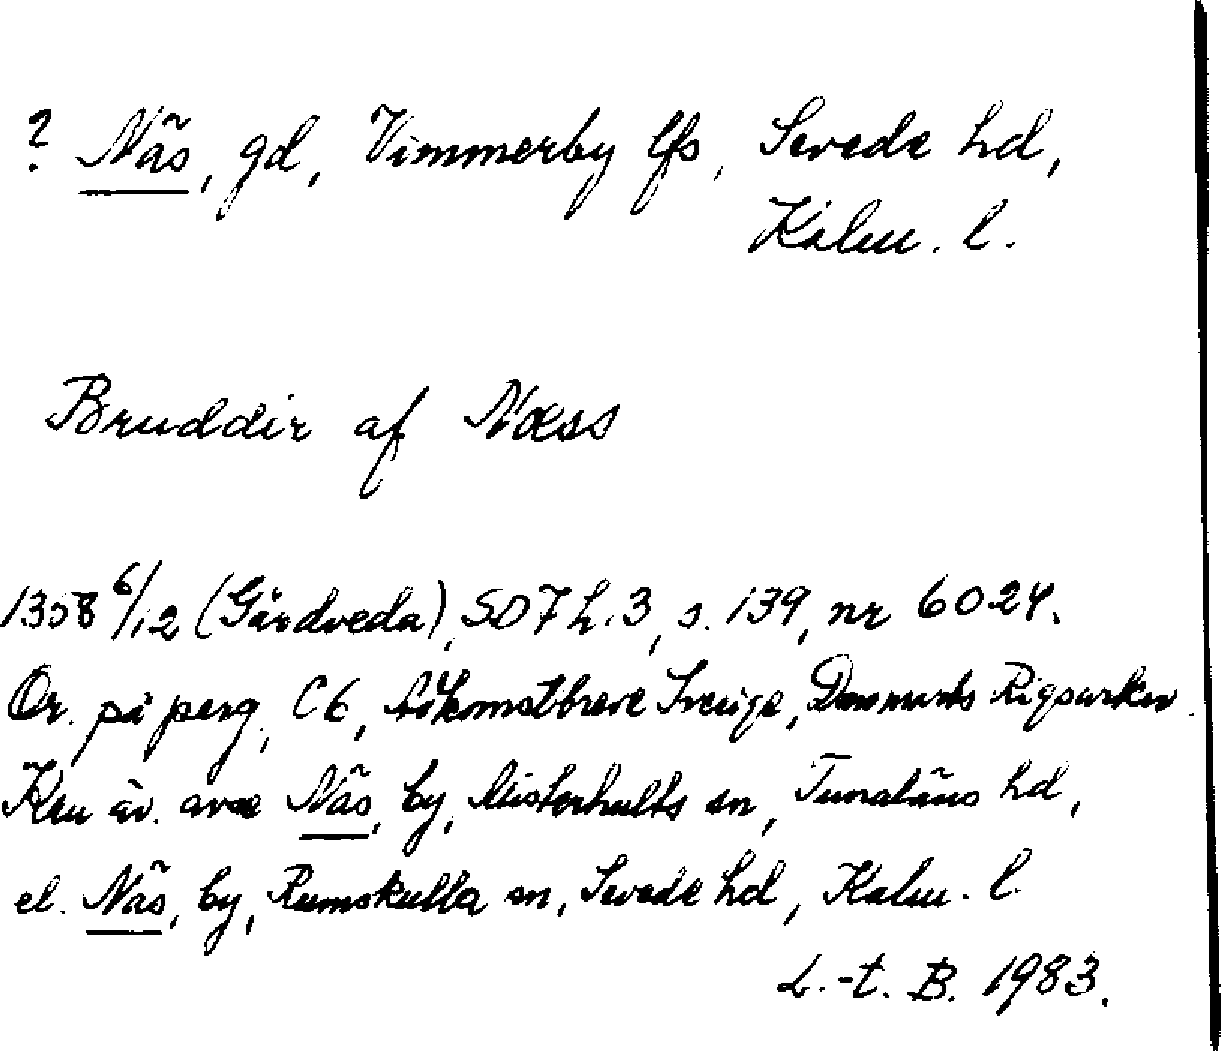 ? Näs, gd, Vimmerby lfs, Sevede hd,
Kalm. l.
Bruddir af Næss
1358 6/12 (Gårdveda), SD 7 h. 3, s. 139, nr 6024.
Or. på perg., C6, Adkomstbreve Sverige, Danmarks Rigsarkiv.
Kan äv. avse Näs, by, Misterhults sn, Tunaläns hd,
el. Näs, by, Rumskulla sn, Sevede hd, Kalm. l.
L.-t. B. 1983.